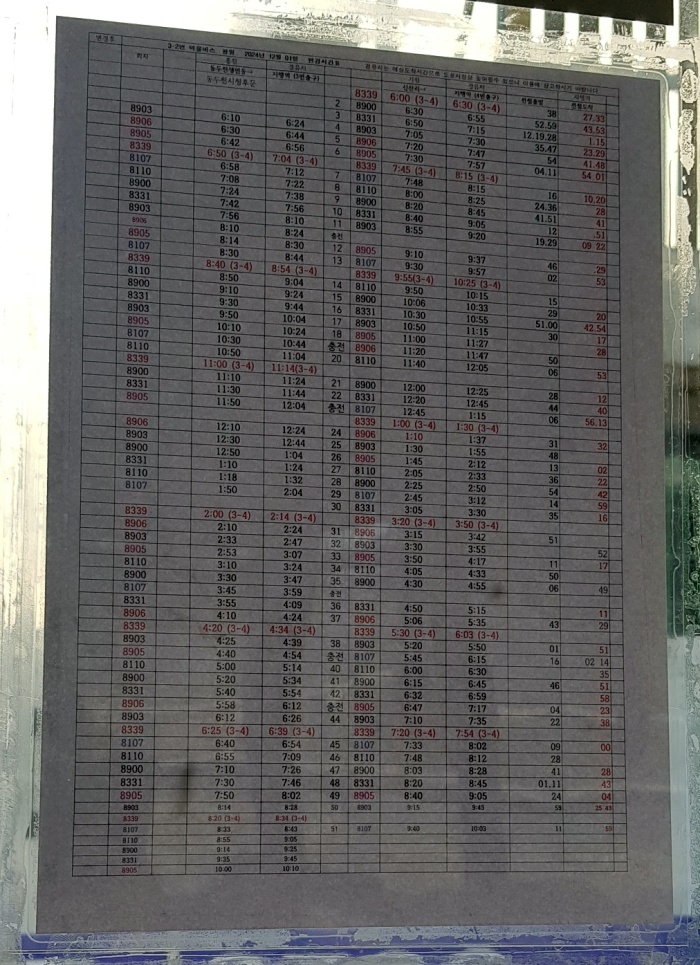 변경호 3-2번 마을버스 평일 2024년 12월 01일 변경시간표
회차 출발 경유지 기점 경유지 지행역
동두천행변호→ 지행역 (3번출구) 신산리→ 지행역 (3번출구) 전철출발 전철도착
동두천시청후문
8339 6:00 (3-4) 6:30 (3-4)
2 8900 6:30 6:55 38 27.33
3 8331 6:50 7:15 52.59 43.53
8903 6:10 6:24 4 8903 7:05 7:30 12.19.28 1.15
8906 6:30 6:44 5 8906 7:20 7:47 35.47 23.29
8905 6:42 6:56 6 8905 7:30 7:57 54 41.48
8339 6:50 (3-4) 7:04 (3-4) 8339 7:45 (3-4) 8:15 (3-4) 04.11 54 01
8107 6:58 7:12 7 8107 7:48 8:15
8110 7:08 7:22 8 8110 8:00 8:25 16 10.20
8900 7:24 7:38 9 8900 8:20 8:45 24.36 28
8331 7:42 7:56 10 8331 8:40 9:05 41.51 41
8903 7:56 8:10 11 8:55 9:20 12 51
8906 8:10 8:24 충전 19.29 09.22
8905 8:14 8:30 12 8905 9:10 9:37
8107 8:30 13 8107 9:30 9:57 46 29
8339 8:40 (3-4) 8:54 (3-4) 8339 9:55(3-4) 10:25 (3-4) 02 53
8110 8:50 9:04 14 8110 9:50 10:15
8900 9:10 9:24 15 8900 10:06 10:33 15
8331 9:30 9:44 16 8331 10:30 10:55 29 20
8903 10:04 17 8903 10:50 11:15 51.00 42.54
8905 10:10 10:24 18 8905 11:00 11:27 30 17
8107 10:30 10:44 충전 8906 11:20 11:47 28
8110 10:50 11:04 20 8110 11:40 12:05 50
8339 11:00 (3-4) 11:14(3-4) 06 53
8900 11:10 11:24 21 8900 12:00 12:25
8331 11:30 11:44 22 8331 12:20 12:45 28 12
8905 11:50 12:04 충전 8107 12:45 1:15 44 40
8339 1:00 (3-4) 1:30 (3-4) 06 56.13
8906 12:10 12:24 24 8906 1:10 1:37
8903 12:30 12:44 25 8903 1:30 1:55 31 32
8900 12:50 1:04 26 8905 1:45 2:12 48
8331 1:10 1:24 27 8110 2:05 2:33 13 02
8110 1:18 1:32 28 8900 2:25 2:50 36 22
8107 1:50 2:04 29 8107 2:45 3:12 54 42
30 8331 3:05 3:30 14 59
8339 2:00 (3-4) 2:14 (3-4) 8339 3:20 (3-4) 3:50 (3-4) 16
8906 2:10 2:24 31 8906 3:15 3:42
8903 2:33 2:47 32 8903 3:30 3:55 51
8905 2:53 3:07 33 8905 3:50 4:17 52
8110 3:10 3:24 34 8110 4:05 4:33 11 17
8900 3:30 3:47 35 8900 4:30 4:55 50
8107 3:45 3:59 충전 06 49
8331 3:55 4:09 36 8331 4:50 5:15
8906 4:10 4:24 37 8906 5:06 5:35 11
8339 4:20 (3-4) 4:34 (3-4) 8339 5:30 (3-4) 6:03 (3-4) 43 29
8903 4:25 4:39 38 8903 5:20 5:50
8905 4:40 4:54 충전 8107 5:45 6:15 01 51
8110 5:00 5:14 40 8110 6:00 6:30 16 02 14
8900 5:20 5:34 41 8900 6:15 6:45 35
8331 5:40 5:54 42 8331 6:32 6:59 46 51
8906 5:58 6:12 충전 8905 6:47 7:17 04 23
8903 6:12 6:26 44 8903 7:10 7:35 22 38
8339 6:25 (3-4) 6:39 (3-4) 8339 7:20 (3-4) 7:54 (3-4)
8107 6:40 6:54 45 8107 7:33 8:02 09 00
8110 6:55 7:09 46 8110 7:48 8:12 28
8900 7:10 7:26 47 8900 8:03 8:28 41 28
8331 7:30 7:46 48 8331 8:20 8:45 01.11 43
8905 7:50 8:02 49 8905 8:40 9:05 24 04
8903 8:14 8:28 50 8903 9:15 9:43 53 25 43
8339 8:20 (3-4) 8:34 (3-4)
8107 8:33 8:43 51 8107 9:40 10:05 11 59
8110 8:55 9:05
8900 9:14 9:25
8331 9:35 9:45
8905 10:00 10:10